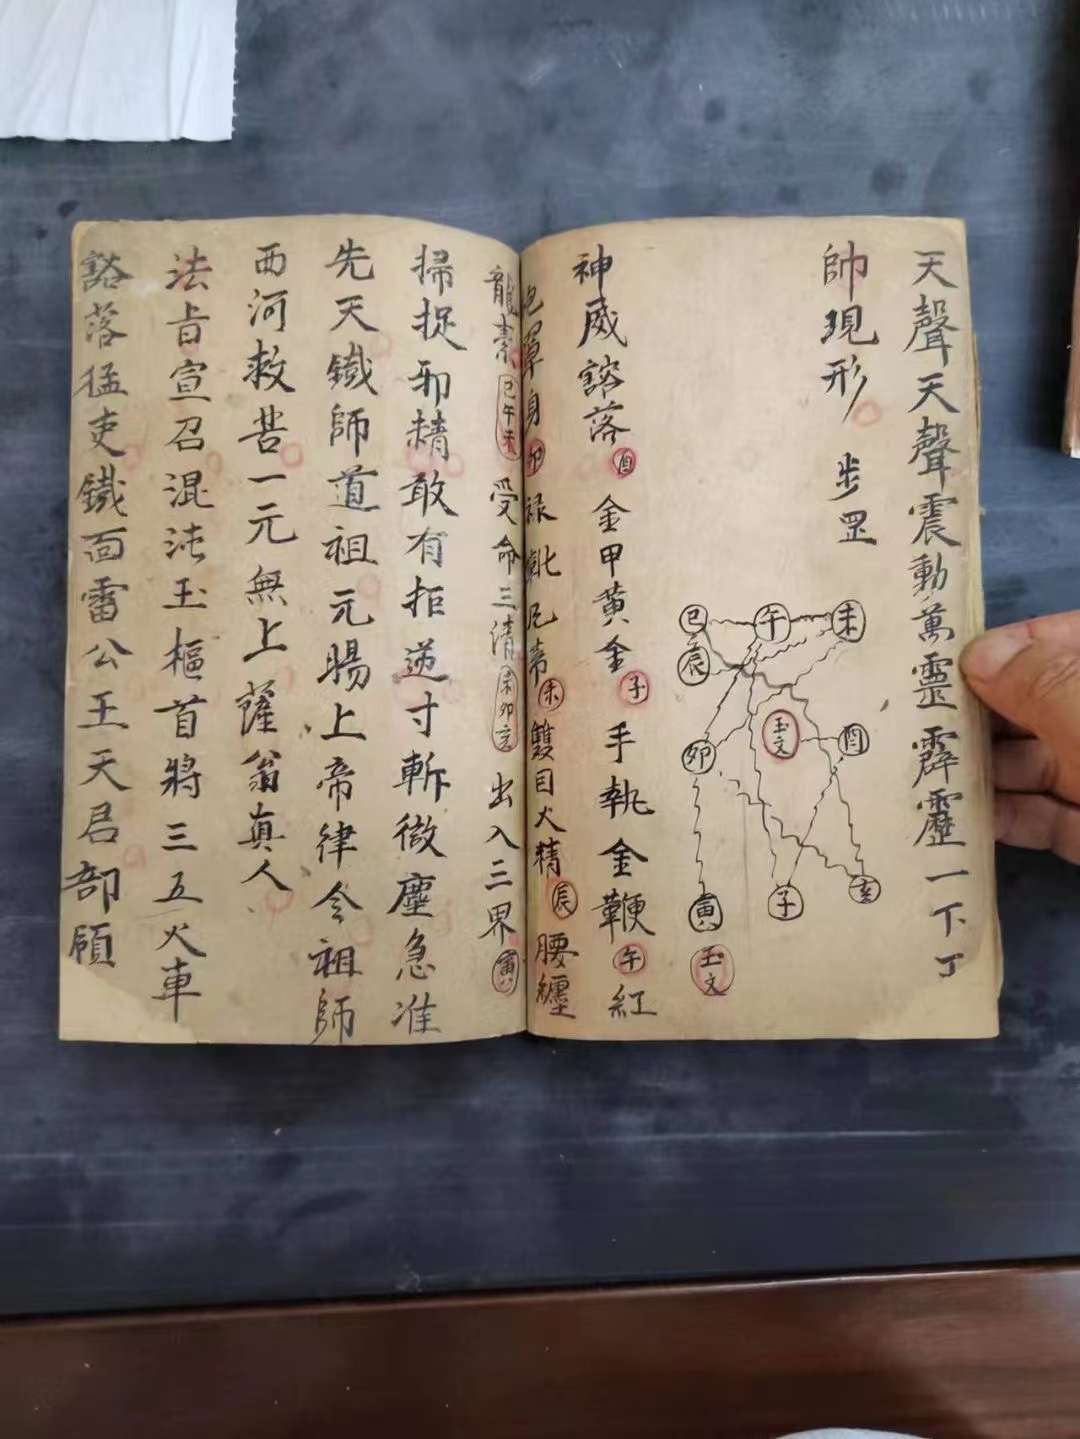 天聲天聲震動萬靈霹靂一下丁
帥現形 步罡
巳 午 未
辰
卯 玉文 酉
寅 子 亥
玉文
神威豁落 酉 金甲黃金 子 手執金鞭 午 紅
袍罩身 卯 綠靴 帝 未 雙目火精 辰 腰纏
龍索 巳午未 受命三清 未卯亥 出入三界 寅
掃捉邪精敢有拒逆寸斬微塵急准
先天鐵師道祖元暘上帝律令祖師
西河救苦一元無上薩翁真人
法旨宣召混沌玉樞首將三五火車
豁落猛吏鐵面雷公王天君部領